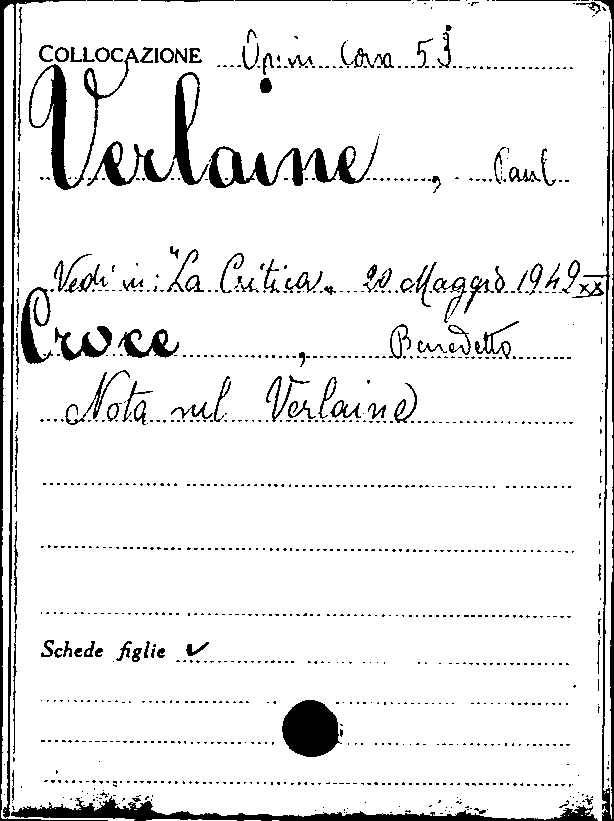 COLLOCAZIONE 53
Verlaine, Paul
Vedi in: "La Critica" 20 Maggio 1942 XX
Croce, Benedetto
Nota sul Verlaine
Schede figlie ✓